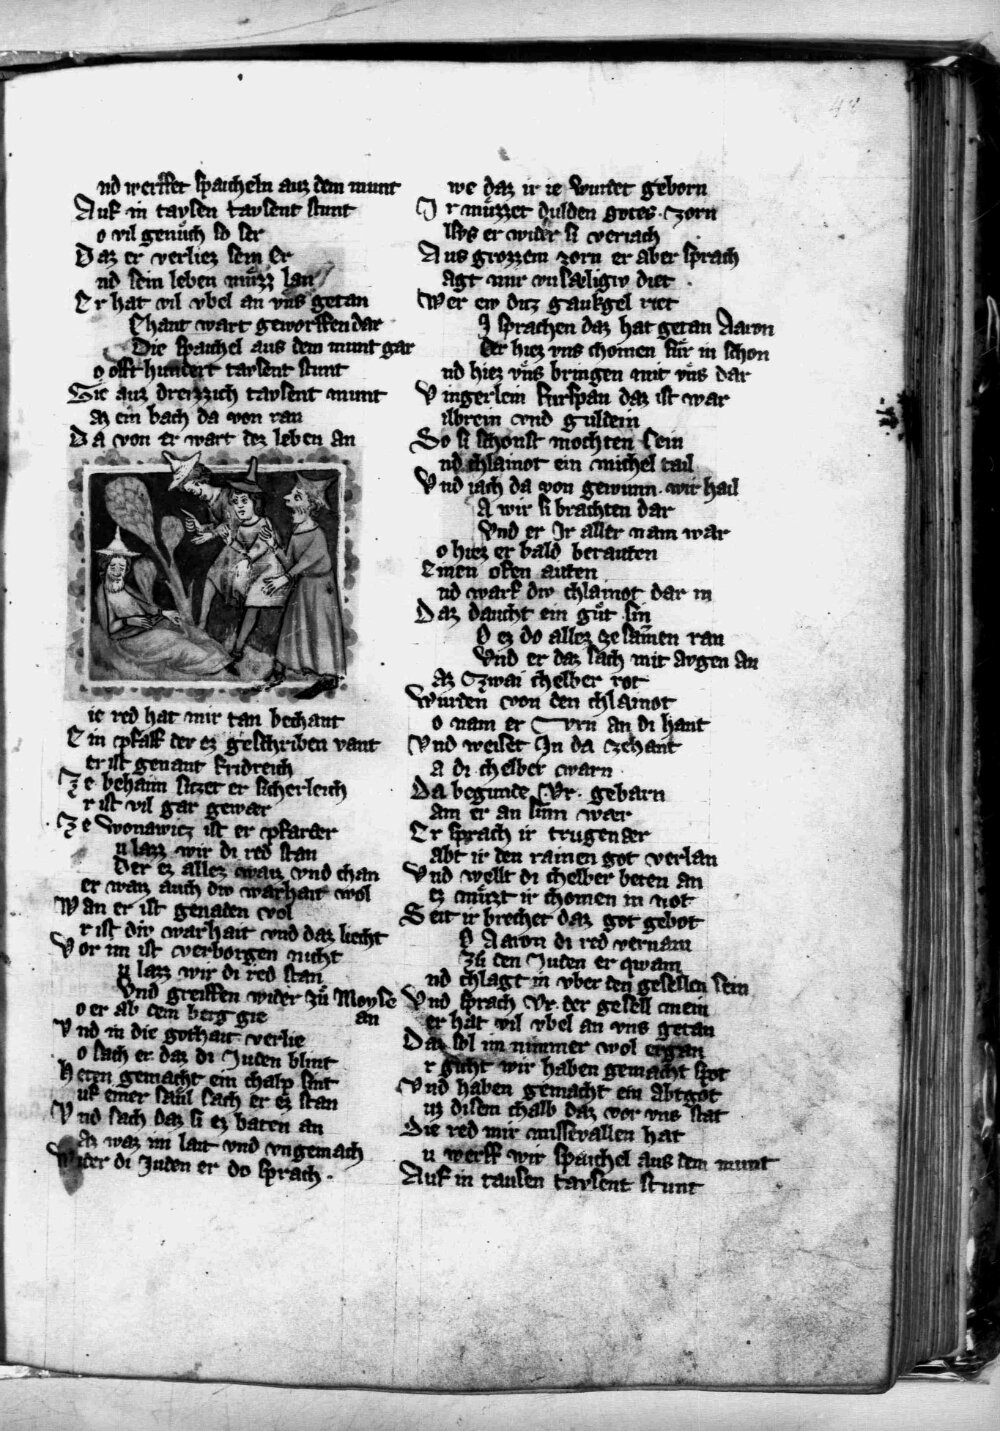 nd werffet spaicheln auz dem munt
Auf in tavsen tavsent stunt
o vil genuͤch so ser
Daz er verliez sein Er
nd sein leben muͤzz lan
Er hat vil vbel an vns getan
Chant wart geworffen dar
Die spaichel aus dem munt gar
o offt hundert tavsent stunt
Sie auz dreizzich tavsent munt
az ein bach da von ran
Da von er wart dez leben an
ie red hat mir tan bechant
Ein pfaff der ez geschriben vant
er ist genant fridreich
Ze behaim siczet er sicherleich
r ist vil gar gewær
Ze wonawicz ist er pfarrer
u lazz wir di red stan
Der ez allez waiz vnd chan
er waiz auch div warhait wol
Wan er ist genaden vol
r ist div warhait vnd daz liecht
Vor im ist verborgen nicht
u lazz wir di red stan
Vnd greiffen wider zuͤ Moyse an
o er ab dem berg gie
Vnd in die gothait verlie
o sach er daz di Juden blint
Heten gemacht ein chalp sint
uf einer saͤul sach er ez stan
Vnd sach daz si ez baten an
az waz im lait vnd vngemach
Wider di Juden er do sprach.
we daz ir ie wurdet geborn
Ir muͤzzet dulden gotes zorn
lsvs er wider si veriach
Aus grozzem zorn er aber sprach
agt mir vnsæligiv diet
Wer ew diz gaukgel riet
I sprachen daz hat getan Aaron
der hiez vns chomen fuͤr in schon
nd hiez vns bringen mit vns dar
Vingerlein fuͤrspan daz ist war
ilbrein vnd guldein
So si schonst mochten sein
nd chlainot ein michel tail
Vnd iach da von gewunn wir hail
A wir si brachten dar
Vnd er Ir aller nam war
o hiez er bald beraiten
Einen ofen aiten
nd warf div chlainot dar in
Daz daucht ein guͤt sin
O ez do allez ze samen ran
Vnd er daz sach mit avgen an
az Zwai chelber rot
Wurden von den chlainot
o nam er Vrn an di hant
Vnd weiset In da zehant
a di chelber warn
Da begunde Vr. gebarn
am er an sinn wær
Er sprach ir trugener
abt ir den rainen got verlan
Vnd wellt di chelber beten an
ez muͤzt ir chomen in not
Seit ir brechet daz gotgebot
O Aaron di red vernam
Zuͤ den Juden er qwam
nd chlagt in vber den gesellen sein
Vnd sprach Vr. der gesell mein
er hat vil vbel an vns getan
Daz sol im nimmer wol ergan
r gicht wir haben gemacht spot
Vnd haben gemacht ein abtgot
uz disem chalb daz vor vns stat
Die red mir missevallen hat
u werff wir spaichel aus dem munt
Auf in tausen tavsent stunt